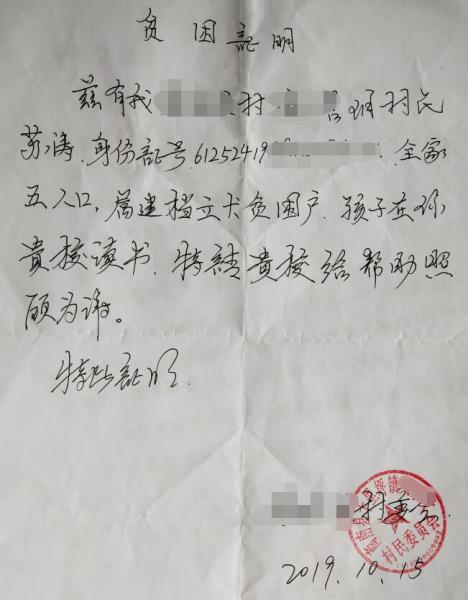 贫困証明
兹有我 村 组村民
苏涛.身份証号.61252419 .全家
五人口,属建档立卡贫困户.孩子在你
貴校读书.特請貴校给帮助照
顾为谢。
特此証明.
村委会
村民委员会
2019.10.15